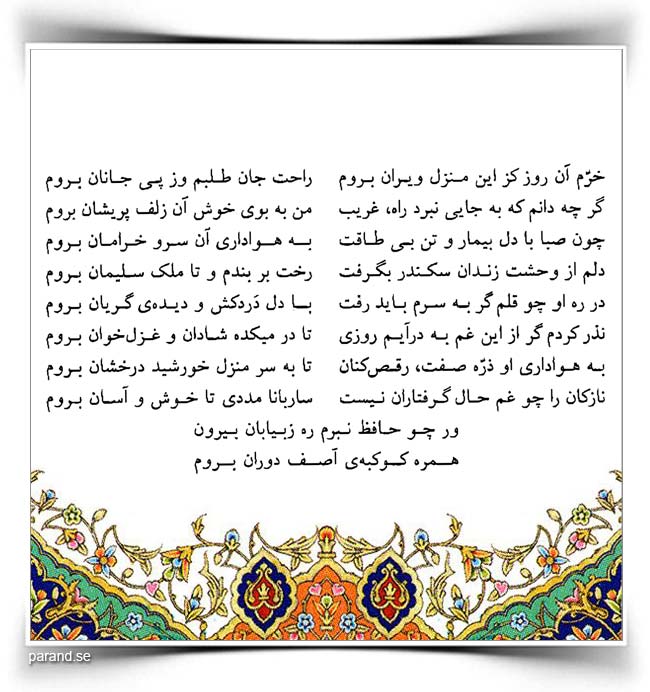 خرّم آن روز کز این مـنزل ویـران بـروم راحت جان طـلبم وز پـی جـانان بـروم
گر چه دانم که به جایی نبرد راه، غریب من به بوی خوش آن زلف پریشان بروم
چون صبا با دل بیمار و تن بـی طـاقت بـه هـواداری آن سرو خرامـان بـروم
دلم از وحشت زنـدان سکـندر بگـرفت رخت بر بندم و تا ملک سـلیمان بـروم
در ره او چو قلم گر بـه سـرم بـاید رفت بـا دل دَردکش و دیـده‌ی گـریان بـروم
نذر کردم گر از این غم به درآیـم روزی تا در میکده شادان و غـزل‌خوان بـروم
بـه هـواداری او ذرّه صـفت، رقـص‌کنان تا به سر منزل خورشید درخشان بـروم
نازکان را چو غم حـال گـرفتاران نیـست ساربانا مددی تا خـوش و آسـان بـروم
ور چـو حـافظ نبرم ره زبـیابان بـیرون
هـمـره کـوکبه‌ی آصـف دوران بـروم
parand.se